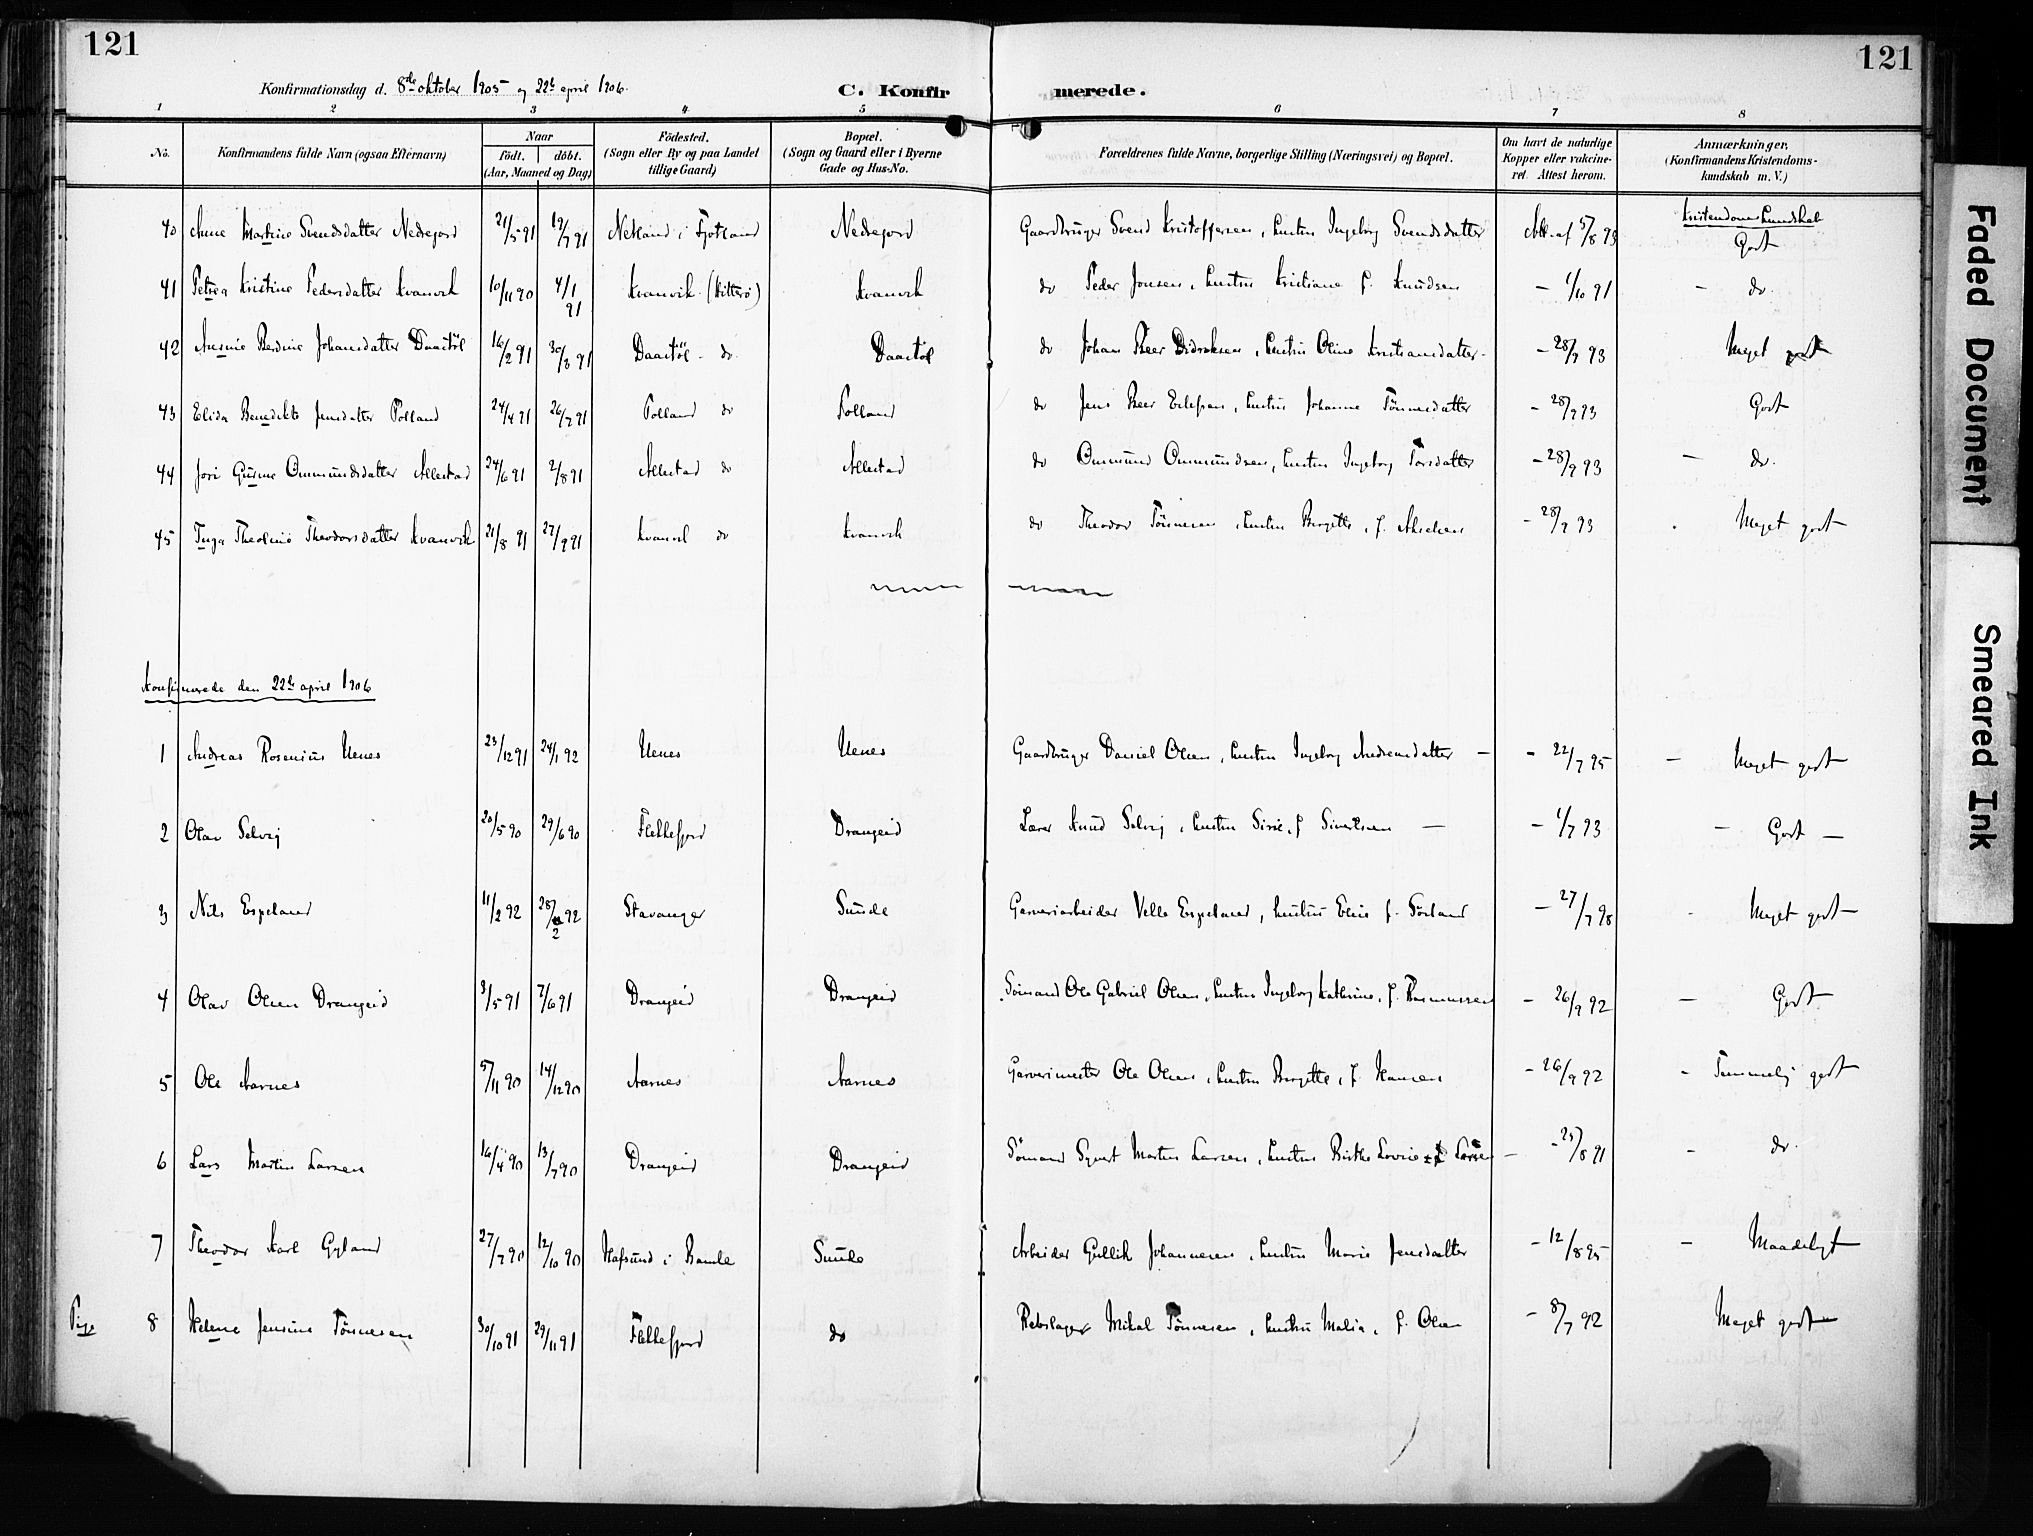 121 121
Konfirmationsdag d. 8de oktober 1905 og 22de april 1906. C. Konfirmerede.
1 2 3 4 5 6 7 8
No. Konfirmandens fulde Navn (ogsaa Efternavn) Naar födt. döbt. (Aar, Maaned og Dag) Födested. (Sogn eller By og paa Landet tillige Gaard) Bopæl. (Sogn og Gaard eller i Byerne Gade og Hus-No. Forældrenes fulde Navne, borgerlige Stilling (Næringsvei) og Bopæl. Om havt de naturlige Kopper eller vakcineret. Attest herom. Anmærkninger. (Konfirmandens Kristendomskundskab m. V.)
Kristendomskundskab
40 Anne Martine Svendsdatter Nedrejord 21/5 91 19/7 91 Netland i Fjotland Nedrejord Gaardbruger Svend Kristoffersen, hustru Ingeborg Svendsdatter Att. af 5/8 93 Godt
41 Petrea Kristine Pedersdatter Kvanvik 10/11 90 4/1 91 Kvanvik (Hitterö) Kvanvik do Peder Jonsen, hustru Kristiane f. Knudsen - 1/10 91 - do.
42 Berdine Johansdatter Daatöl 16/2 91 30/3 91 Daatöl - do. Daatöl do Johan Peer Didriksen, hustru Oline Kristiansdatter - - 28/9 93 Meget godt
43 Elida Benedikte Jensdatter Polland 24/4 91 26/7 91 Polland do Polland do Jens Peer hustru Johanne Tönnesdatter - 28/9 93 Godt
44 Jori Gurine Ommundsdatter Allestad 24/6 91 2/8 91 Allestad do Allestad do Ommund Ommundsen, hustru Ingeborg Torsdatter - 28/9 93 - do.
45 Inga Theoline Theodorsdatter Kvanvik 21/8 91 27/9 91 Kvanvik do Kvanvik do Theodor Tönnesen, hustru Bergitte, f. - 28/9 93 Meget godt
Konfirmerede den 22de april 1906
1 Andreas Rosenius Uenes 23/12 91 24/1 92 Uenes Uenes Gaardbruger Daniel Olsen, hustru Ingeborg Andreasdatter - - 22/7 95 - Meget godt
2 Olav Selvig 20/5 90 29/6 90 Flekkefjord Drangeid Lærer Knud Selvig, hustru Sirie, f. Sivertsen - - 1/7 93 - Godt -
3 Nils Espeland 11/2 92 28/2 92 Stavanger Sunde Garveriarbeider Velle Espeland, hustru Elise f. Sörland - 27/7 98 - Meget godt -
4 Olav Olsen Drangeid 3/5 91 7/6 91 Drangeid Drangeid Sömand Ole Gabriel Olsen, hustru Ingeborg Kathrine, f. Rasmussen - 26/9 92 - Godt
5 Ole Aarnes 5/11 90 14/12 90 Aarnes Aarnes Garverimester Ole Olsen, hustru Bergitte, f. Hansen - 26/9 92 - Temmelig godt
6 Lars Martin Larsen 16/4 90 13/7 90 Drangeid Drangeid Sömand Syvert Martin Larsen, hustru Birthe Lovise f. - - 25/8 91 - do.
7 Theodor Karl Gyland 27/7 90 12/10 90 Hafsund i Bamle Sunde Arbeider Gullik Johannesen, hustru Marie Jensdatter - 12/8 95 - Maadeligt
Pige 8 Helene Jensine Tönnesen 30/10 91 29/11 91 Flekkefjord do Rebslager Mikal Tönnesen, hustru Malia, f. Olsen - 8/7 92 Meget godt
Faded Document
Smeared Ink